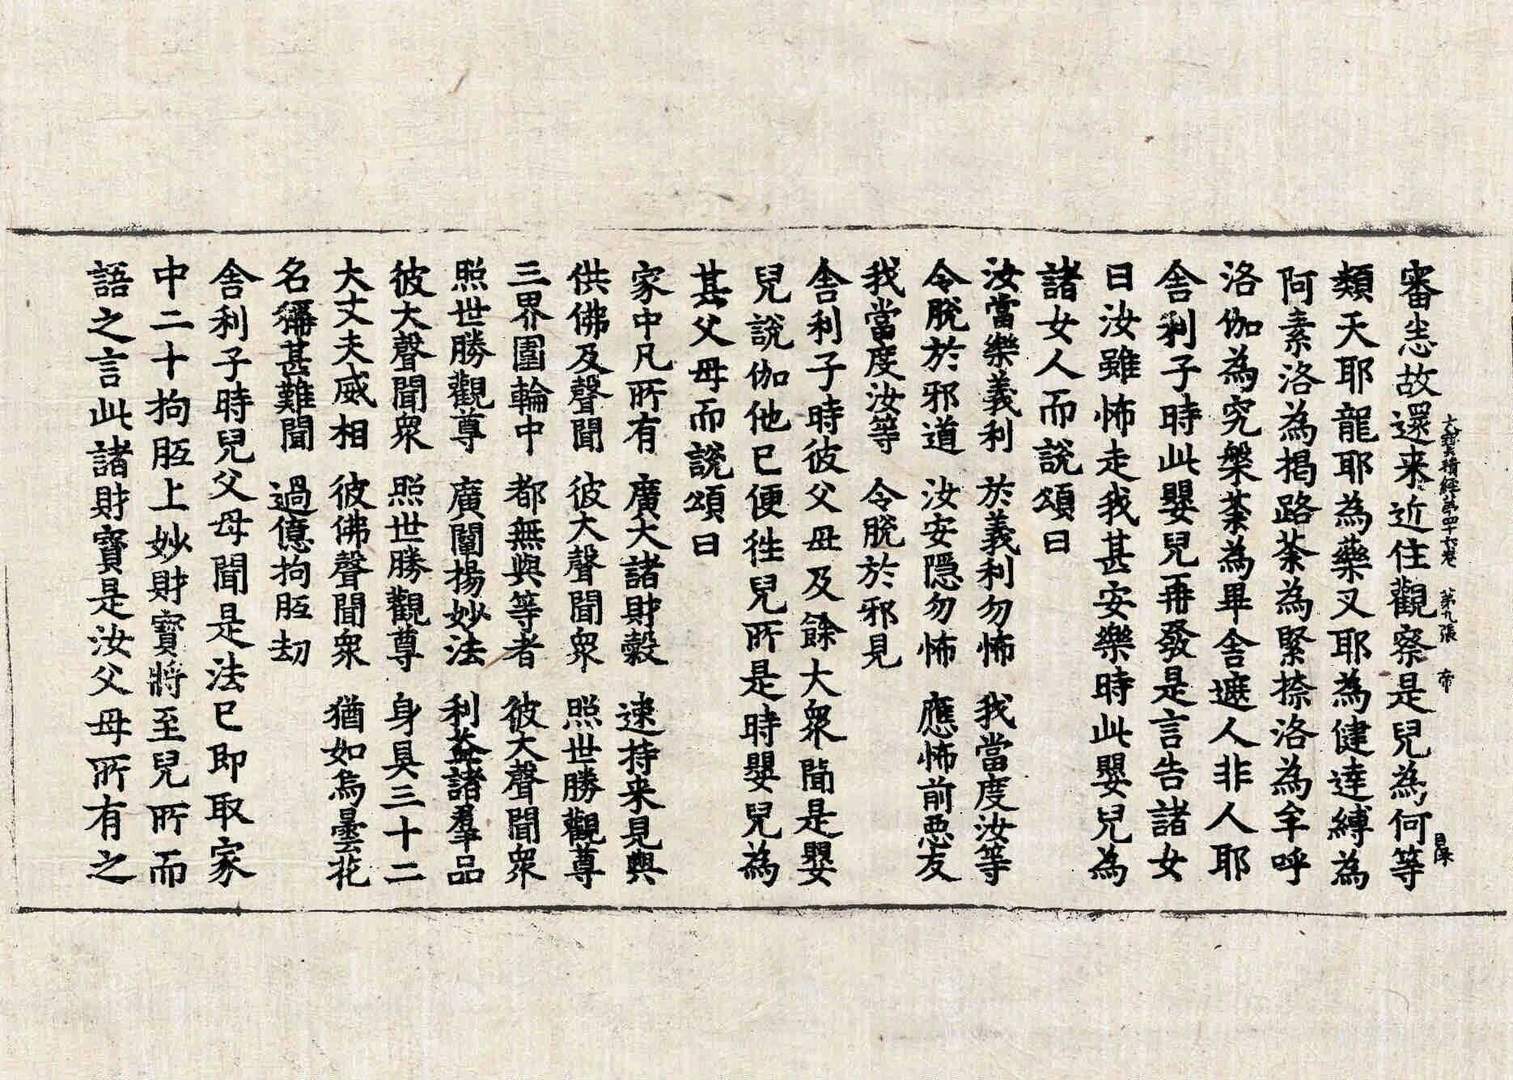 大寶積經第四十六卷 第九張 帝
審恙故還来近住觀察是兒為何等
類天耶龍耶為藥叉耶為健達縛為
阿素洛為揭路荼為緊捺洛為牟呼
洛伽為究槃荼為畢舍遮人非人耶
舍利子時此嬰兒再發是言告諸女
曰汝雖怖走我甚安樂時此嬰兒為
諸女人而說頌曰
汝當樂義利 於義利勿怖 我當度汝等
令脫於邪道 汝安隱勿怖 應怖前惡友
我當度汝等 令脫於邪見
舍利子時彼父母及餘大衆聞是嬰
兒說伽他已便往兒所是時嬰兒為
其父母而說頌曰
家中凡所有 廣大諸財穀 速持来見與
供佛及聲聞 彼大聲聞衆 照世勝觀尊
三界圍輪中 都無與等者 彼大聲聞衆
照世勝觀尊 廣闡揚妙法 利益諸羣品
彼大聲聞衆 照世勝觀尊 身具三十二
大丈夫威相 彼佛聲聞衆 猶如烏曇花
名稱甚難聞 過億拘胝劫
舍利子時兒父母聞是法已即取家
中二十拘胝上妙財寳將至兒所而
語之言此諸財寳是汝父母所有之